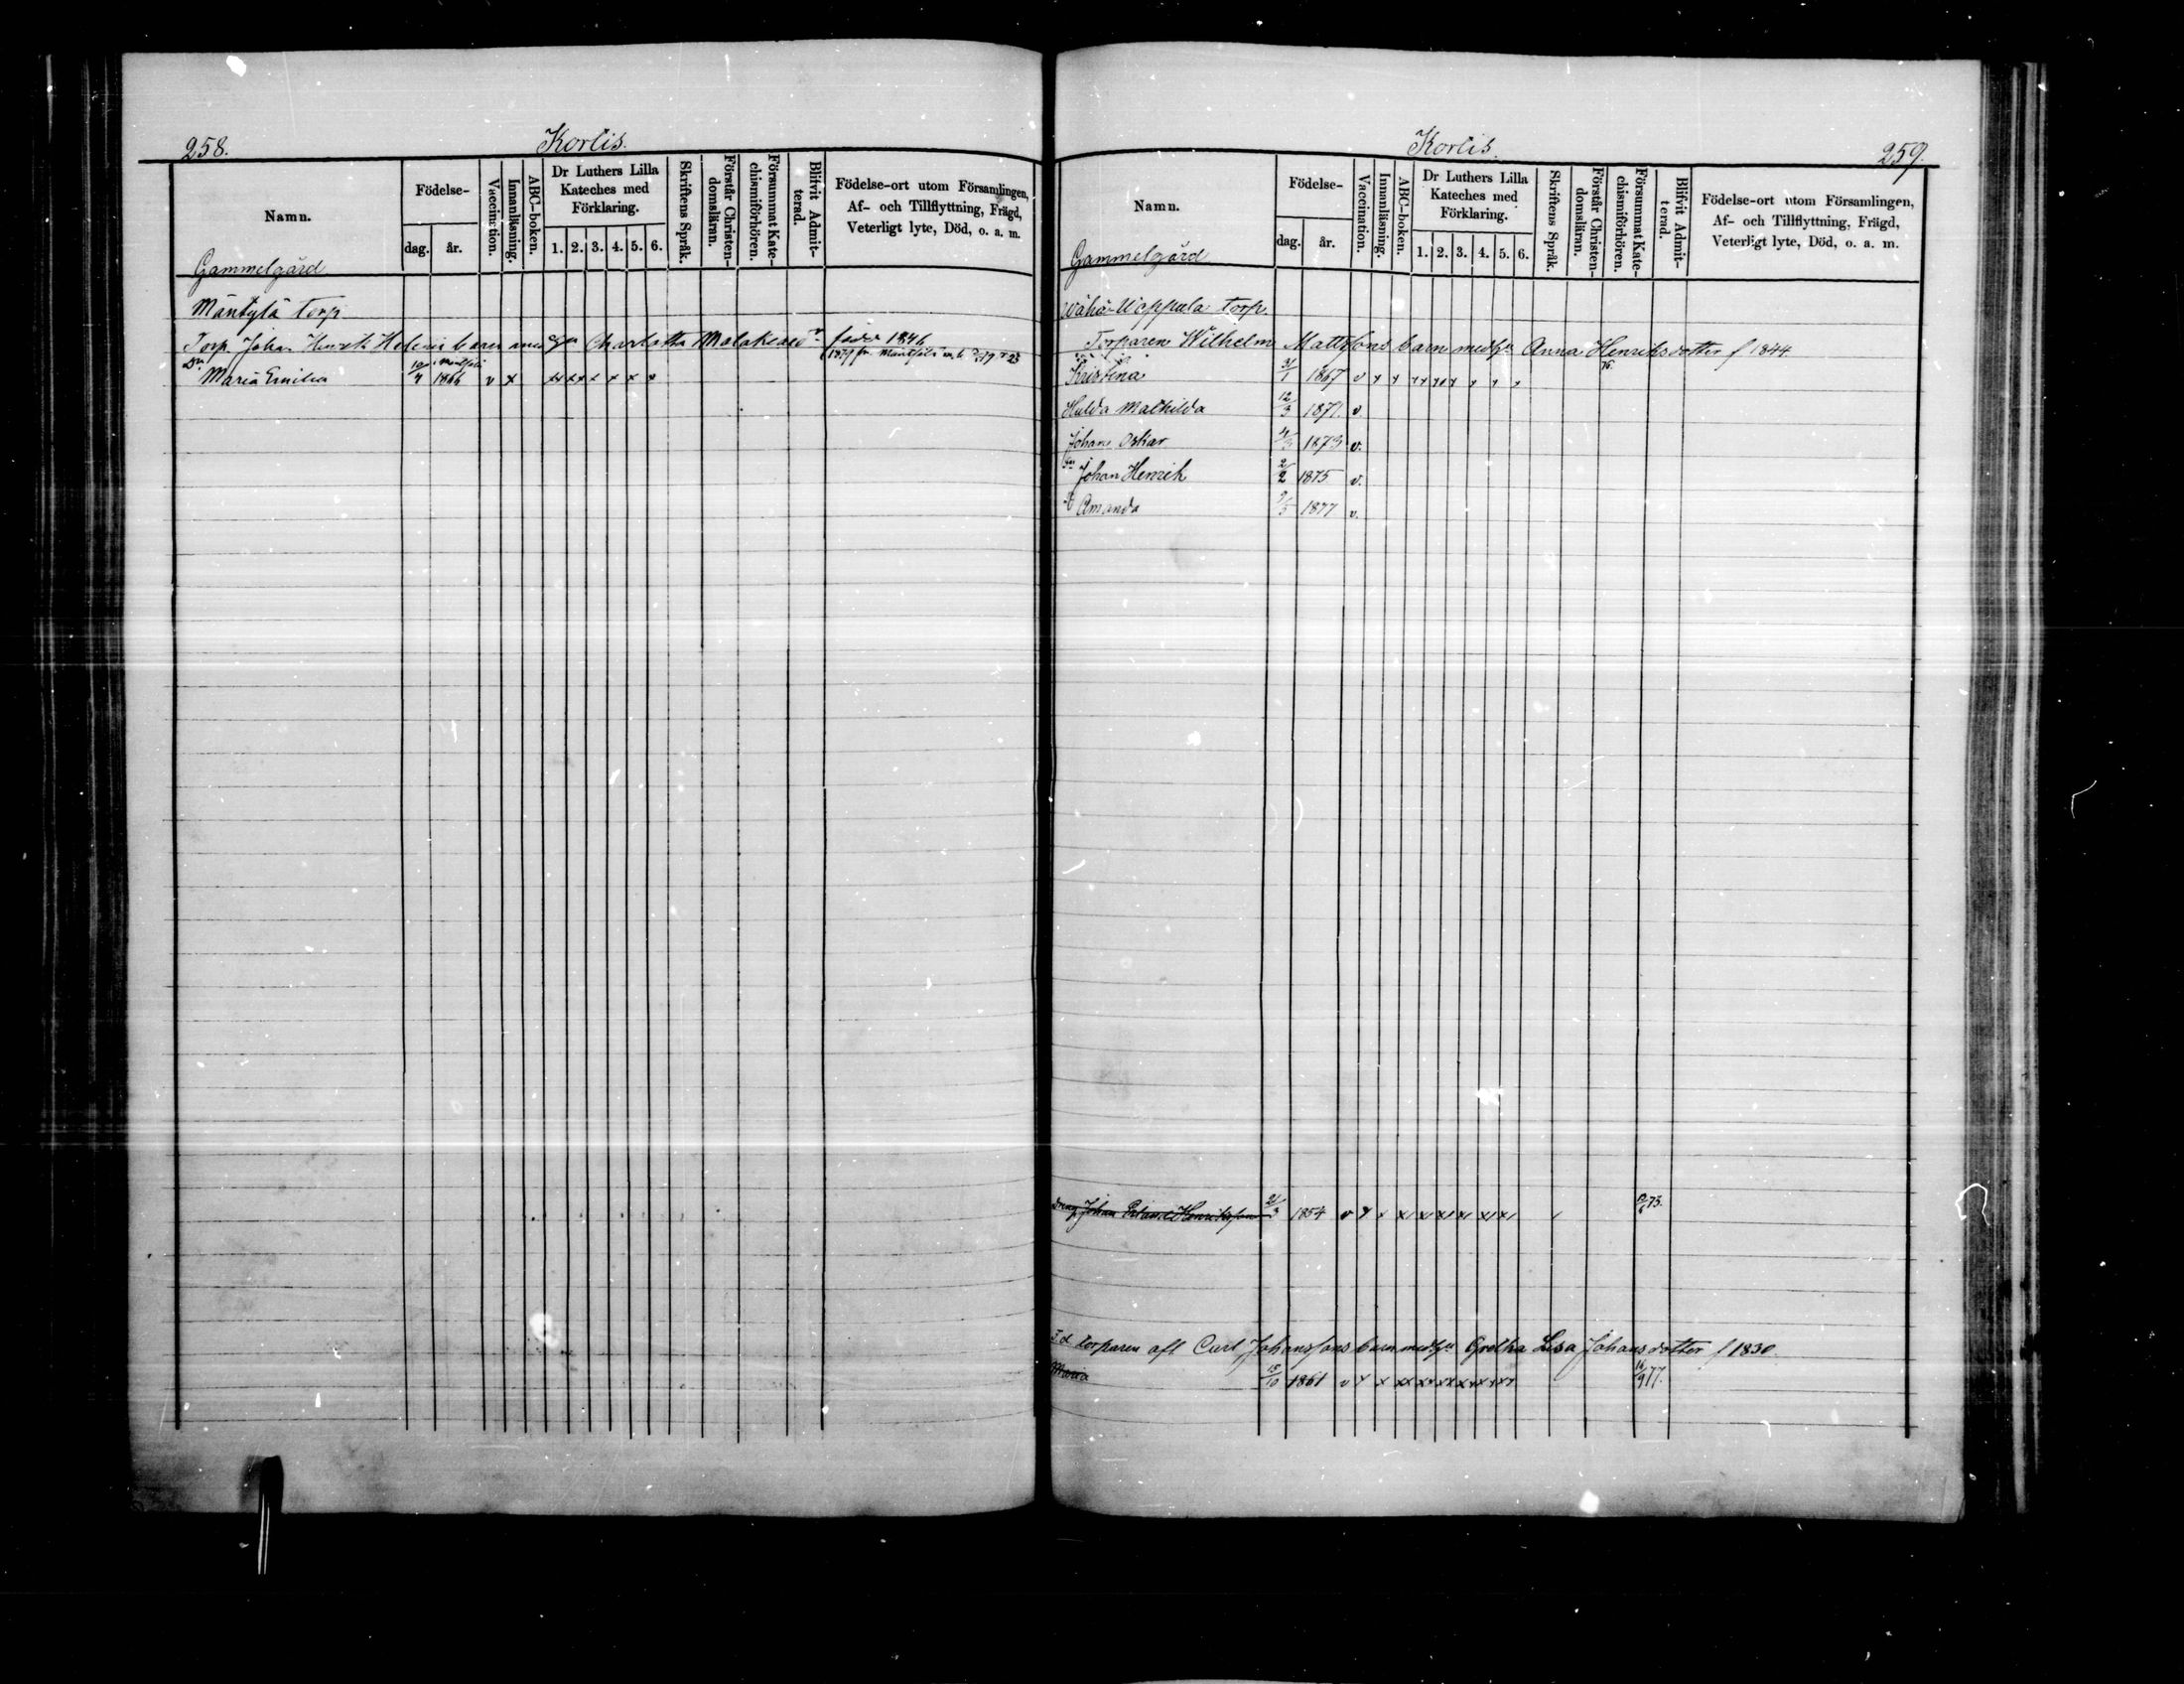 258.
Korlis.
Namn.
Födelse-
dag.
år.
Vaccination.
Innanläsning.
ABC-boken.
Dr Luthers Lilla Kateches med Förklaring.
1. 2. 3. 4. 5. 6.
Skriftens Språk.
Förstår Christen-domsläran.
Försummat Kate-chismiförhören.
Blifvit Admit-terad.
Födelse-ort utom Församlingen,
Af- och Tillflyttning, Frägd,
Veterligt lyte, Död, o. a. m.
Gammelgård
Mäntylä torp
Torp. Johan Henrik Charlotta född 1846
Maria Emilia 1866 v x
Korlis.
259.
Namn.
Födelse-
dag.
år.
Vaccination.
Innanläsning.
ABC-boken.
Dr Luthers Lilla Kateches med Förklaring.
1. 2. 3. 4. 5. 6.
Skriftens Språk.
Förstår Christen-domsläran.
Försummat Kate-chismiförhören.
Blifvit Admit-terad.
Födelse-ort utom Församlingen,
Af- och Tillflyttning, Frägd,
Veterligt lyte, Död, o. a. m.
Gammelgård
Wähä-Uoppula torp.
Torparen Wilhelm Mattssons barn med hu Anna Henriksdotter f 1844
Kristina 31/1 1867 v
Hulda Mathilda 12/3 1871. v.
Johan Oskar 1873 v.
Johan Henrik 2/2 1875 v.
Amanda 9/5 1877 v.
Johan Henriksson 21/3 1854 v
torparen aft Curt Johanssons barn med hu Gretha Lisa Johansdotter f 1830.
Maria 1861 v 16/9 77.